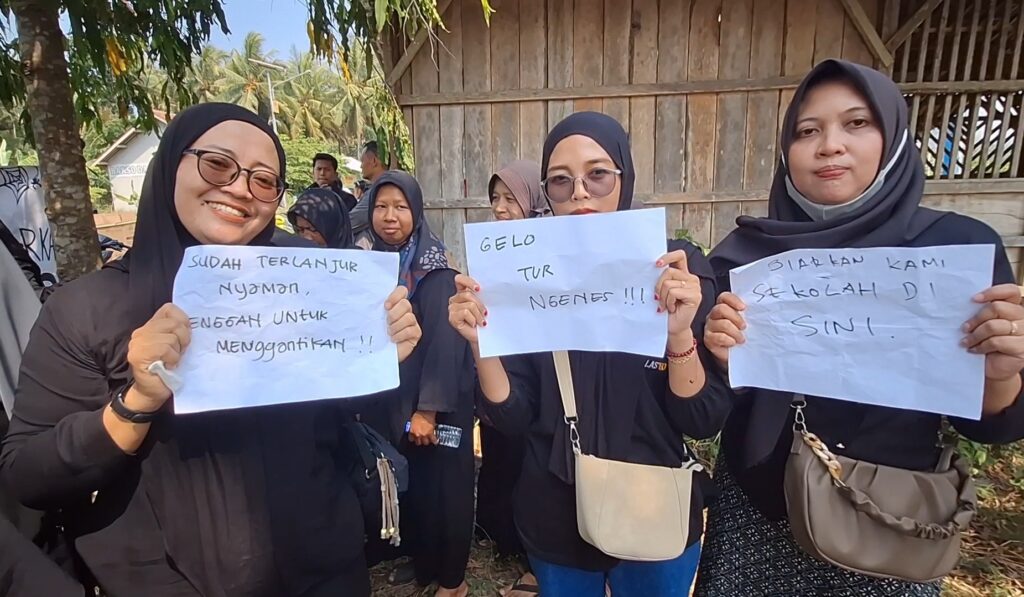 SUDAH TERLANJUR
NYAMAN,
ENGGAH UNTUK
MENGGANTIKAN !!
GELO
TUR
NGENES !!!
BIARKAN KAMI
SEKOLAH DI
SINI.